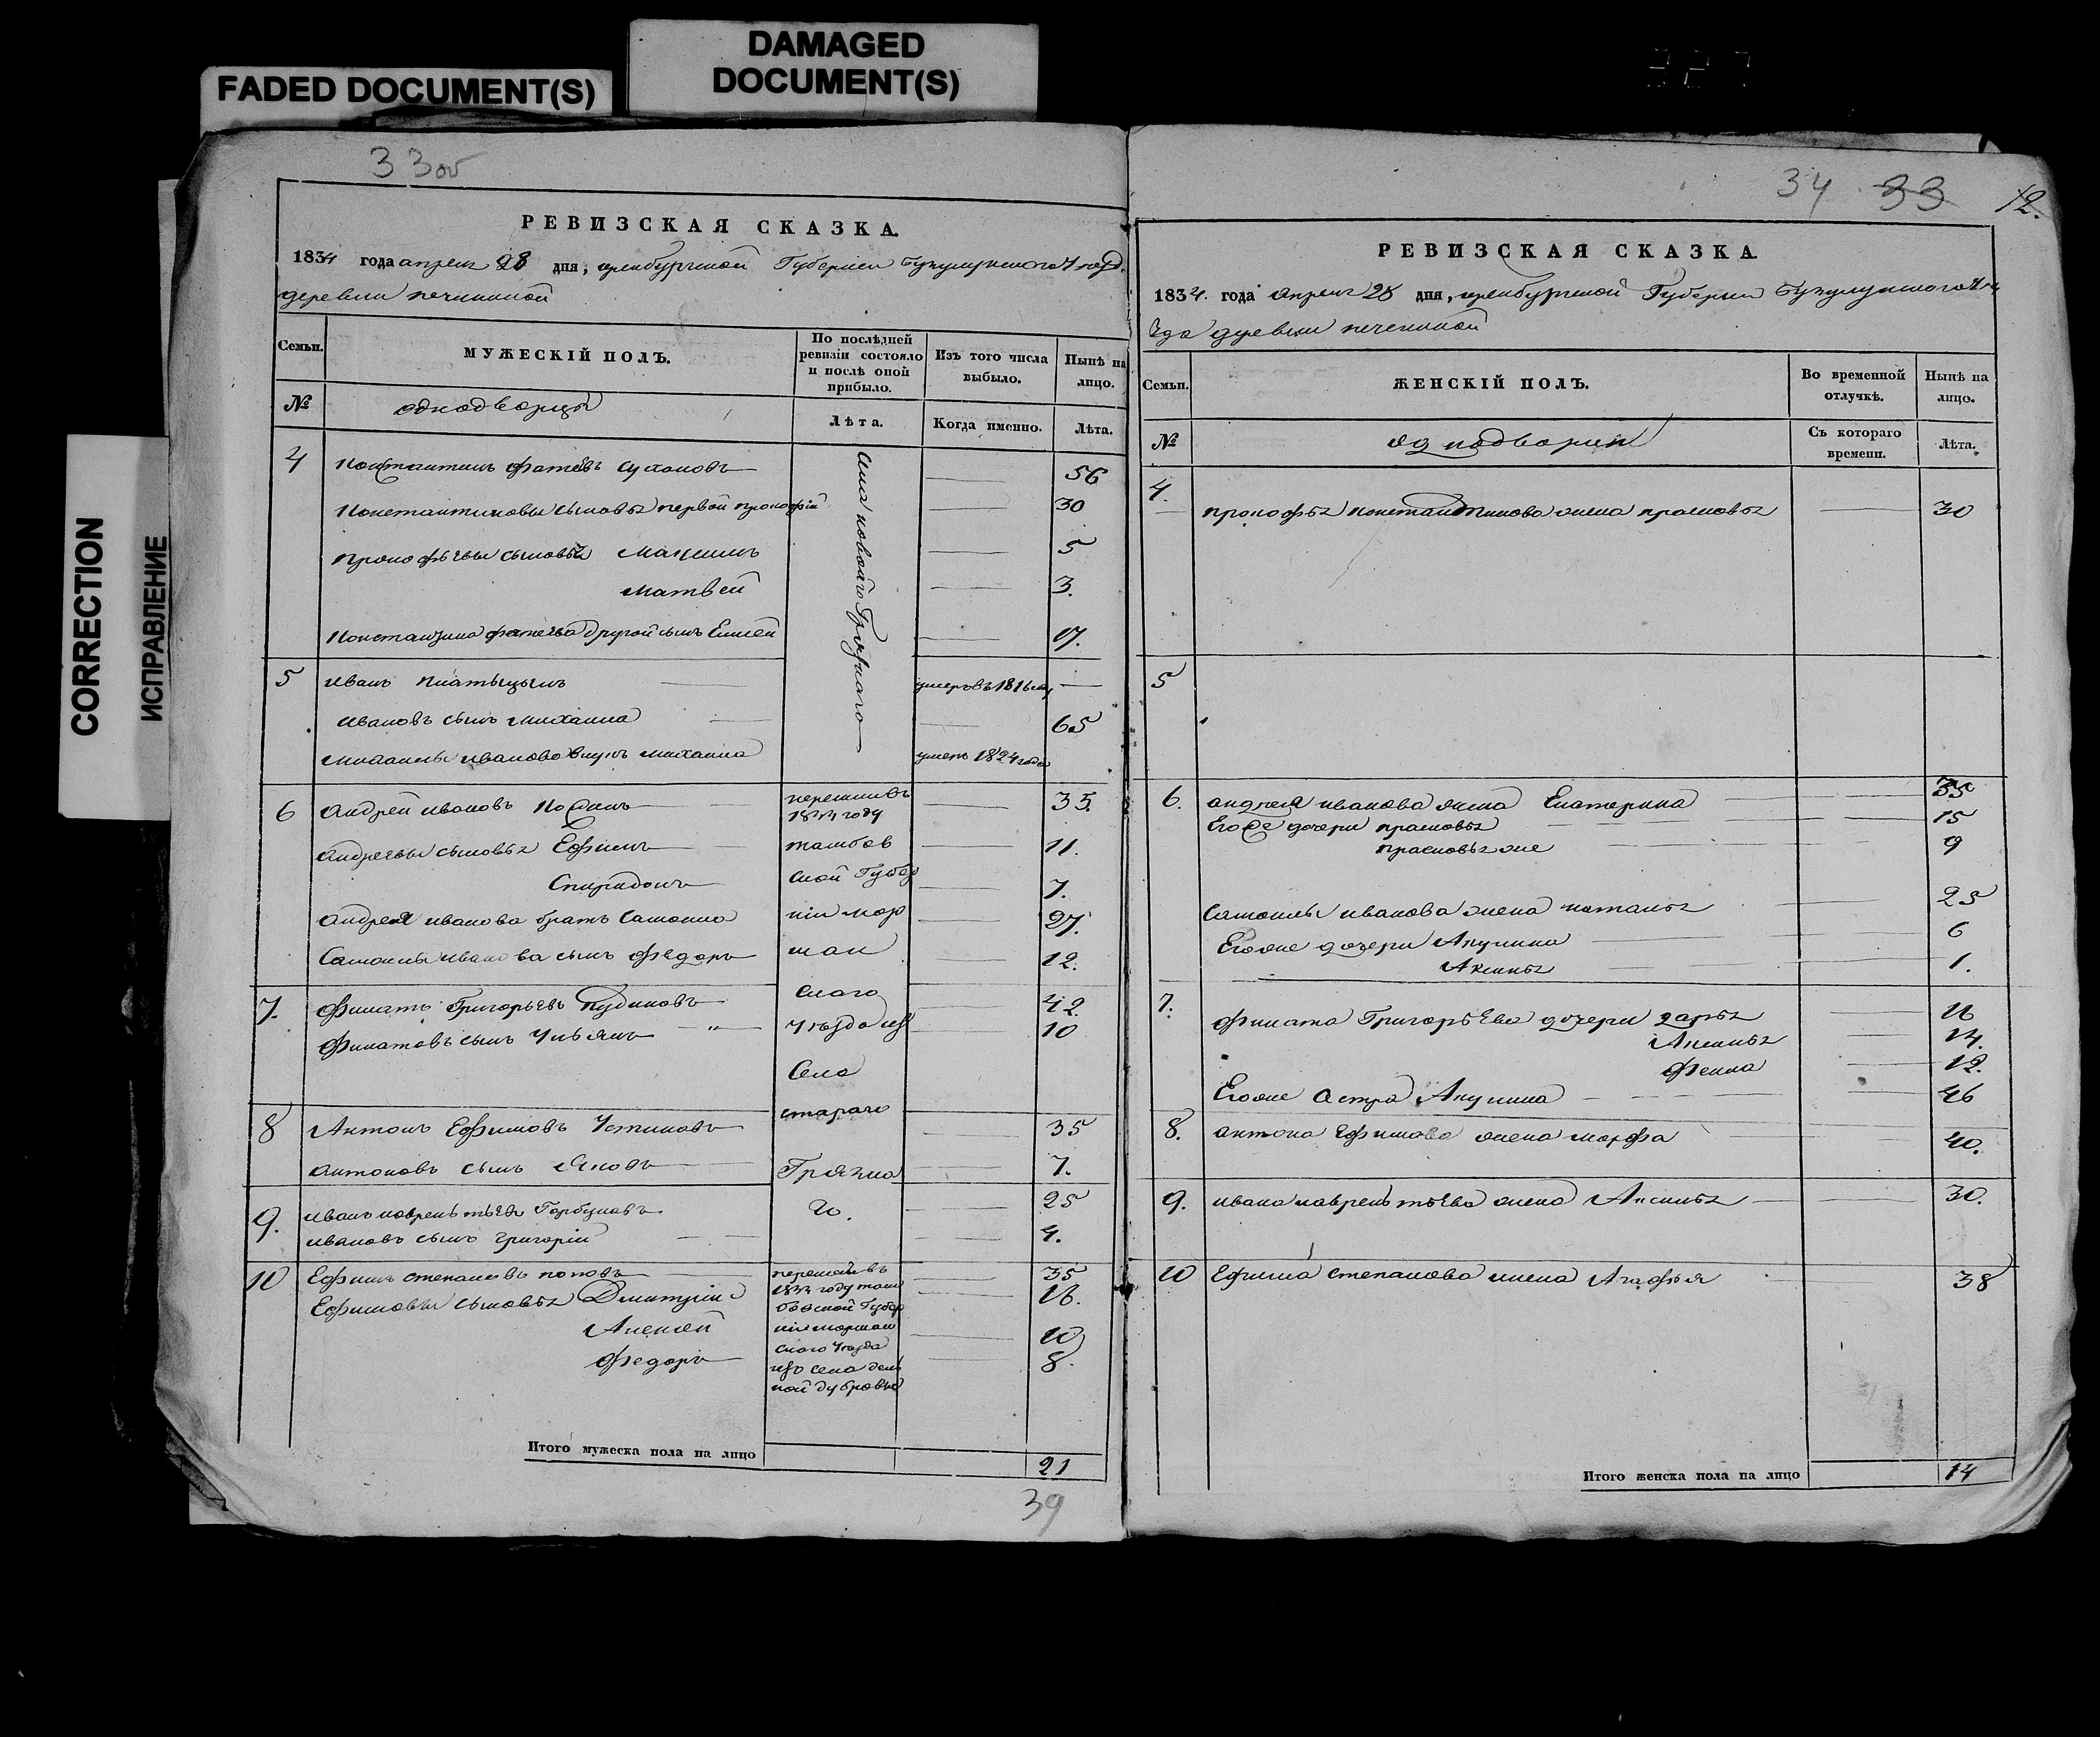 FADED DOCUMENT(S)
DAMAGED
DOCUMENT(S)
CORRECTION
ИСПРАВЛЕНИЕ
33об
РЕВИЗСКАЯ СКАЗКА.
1834 года апреля 28 дня, оренбургской Губернии
деревни
Семьи.
МУЖЕСКІЙ ПОЛЪ.
По послѣдней
ревизіи состояло
и послѣ оной
прибыло.
Изъ того числа
выбыло.
Нынѣ на
лицо.
№
однодворцы
Лѣта.
Когда именно.
Лѣта.
4
Константинъ сухановъ
56
Константиновы сыновья первой прокофій
30
Прокофьевы сыновья Максимъ
5
матвей
3.
другой сынъ Елисей
17.
5
Иванъ
умеръ въ 1816
Ивановъ сынъ михаила
65
михаилы иванова внукъ михаила
умеръ 1824 года
6
Андрей ивановъ
35.
Андреевы сыновья Ефимъ
11.
Спиридонъ
7.
Андрея иванова братъ Самоила
27.
Самоилы иванова сынъ Федоръ
12.
перешли въ
году
тамбов
ской Губер
ніи мор
шан
скаго
уѣзда изъ
Села
стараго
Грязна
го.
7.
Филатъ Григорьевъ Кудиновъ
42
Филатовъ сынъ Ульянъ
10
8
Антонъ Ефимовъ Устиновъ
35
Антоновъ сынъ Яковъ
7.
9.
Иванъ лаврентьевъ Горбуновъ
25
Ивановъ сынъ григорій
4.
10
Ефимъ степановъ поповъ
35
Ефимовы сыновья Дмитрій
16.
Алексей
10
Федоръ
8.
перешли въ
году там
бовской Губер
ніи моршан
скаго уѣзда
изъ села
ной дубровы
Итого мужеска пола на лицо
21
39
34 33 12.
РЕВИЗСКАЯ СКАЗКА.
1834. года апреля 28 дня, оренбургской Губерніи
ѣзда деревни
Семьи.
ЖЕНСКІЙ ПОЛЪ.
Во временной
отлучкѣ.
Нынѣ на
лицо.
№
Съ котораго
времени.
Лѣта.
4.
прокофья константинова жена прасковья
30
5
6.
андрея иванова жена Екатерина
35
Его же дочери прасковья
15
прасковья же
9
Самоилы иванова жена наталья
25
Его же дочери Акулина
6
Аксинья
1.
7.
Филата Григорьева дочери дарья
16
Аксинья
14.
Фекла
12.
Его же сестра Акулина
46
8.
антона Ефимова жена марфа
40.
9.
ивана лаврентьева жена Аксинья
30.
10
Ефима степанова жена Агафья
38
Итого женска пола на лицо
14